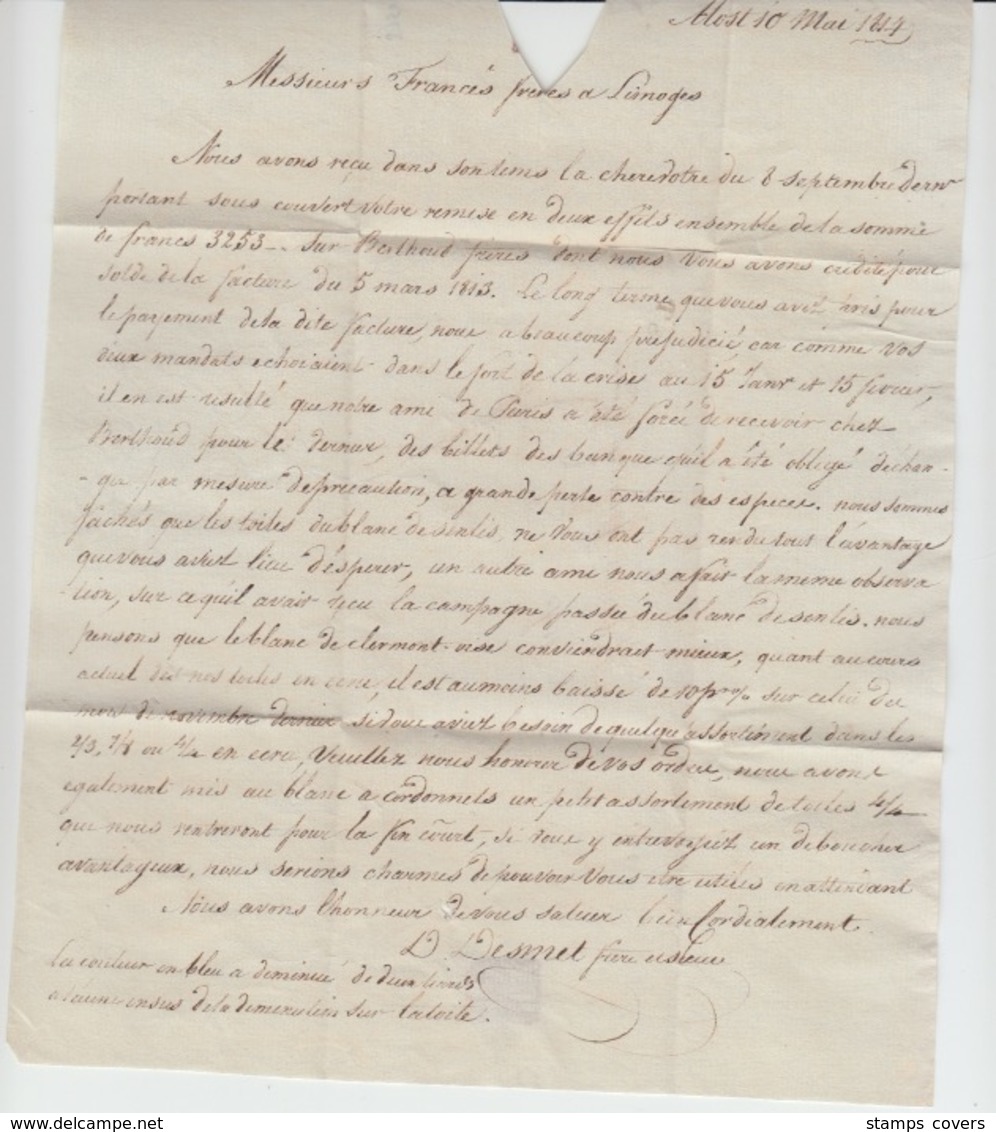 Alost 10 Mai 1814
Messieurs Francés freres a Limoges
Nous avons reçu dans son tems la chere votre du 8 septembre dernr
portant sous couvert votre remise en deux effets ensemble de la somme
de francs 3253 – sur Berthoud frères dont nous vous avons crédité pour
solde de la facture du 5 mars 1813. Le long terme que vous avez pris pour
le payement de la dite facture, nous a beaucoup préjudicié, car comme vos
deux mandats echoiaient dans le fort de la crise au 15 Janvr et 15 fevrier,
il en est resulté que notre ami de Paris a été forcé de recevoir chez
Berthoud pour le dernier, des billets des banque qu'il a été obligé d'echan-
-ger par mesure de precaution, a grande perte contre des especes. nous sommes
fachés que les toiles du blanc de senlis, ne vous ont pas rendu tout l'avantage
que vous aviez lieu d'ésperer, un autre ami nous a fait la meme observa
-tion, sur ce qu'il avait reçu la campagne passée du blanc de senlis. nous
pensons que le blanc de clermont oise conviendrait mieux, quant au cours
actuel des nos toiles en ecru, il est au moins baissé de 10 p% sur celui du
mois de novembre dernier si vous aviez besoin de quelqu'assortiment dans les
2/3, 7/8 ou 4/4 en ecru, Veuillez nous honorer de vos ordres, nous avons
egalement mis au blanc a cordonnets un petit assortiment de toiles 4/4
que nous rentreront pour la fin court, si vous y entrevoyiez un deboucher
avantageux, nous serions charmés de pouvoir vous etre utiles en attendant
Nous avons l'honneur de vous saluer bien Cordialement
D. Desmet frere et soeur
La couleur en bleu a diminué de deux liards
a l'aune en sus de la diminution sur la toile.
stamps covers